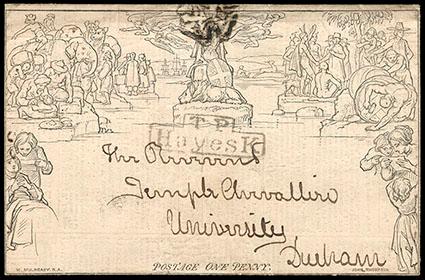 T.P.
Hayes K.
The Reverend
Temple Chevallier
University
Durham
POSTAGE ONE PENNY.
W. MULREADY. R.A.
JOHN THOMPSON